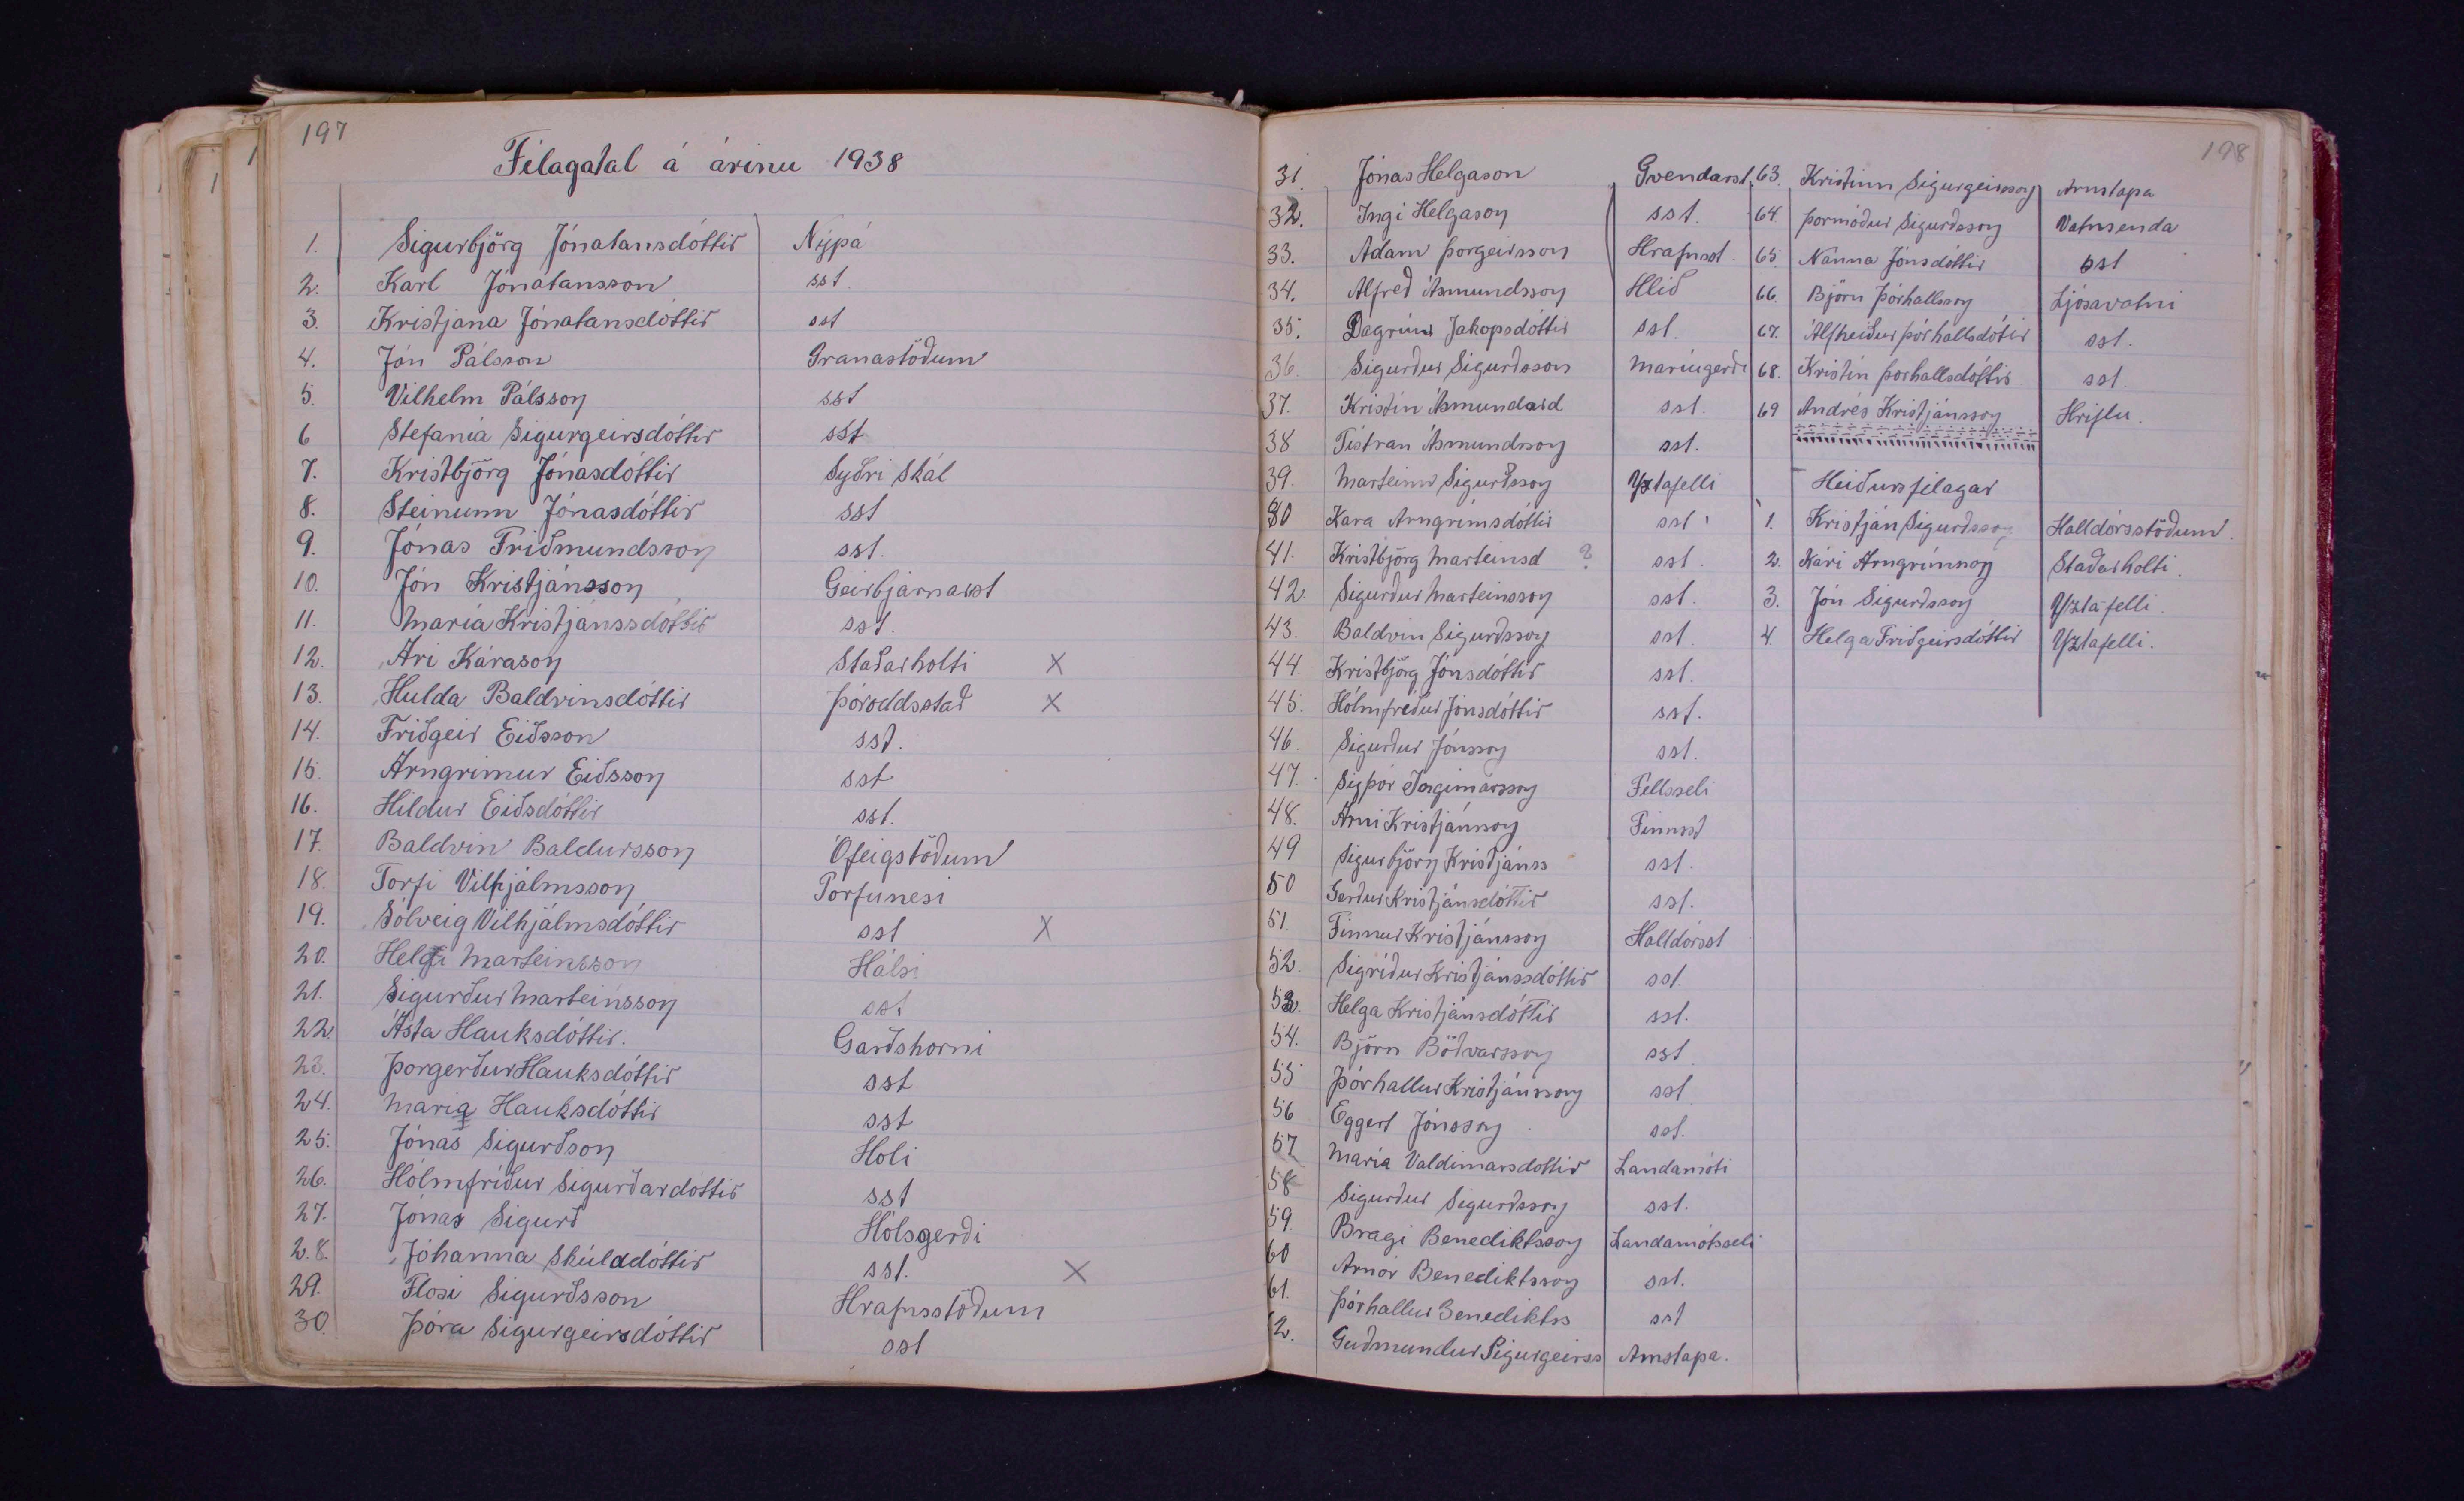 197
Félagatal á árinu 1938
1. Sigurbjörg Jónatansdóttir Nýpá
2. Karl Jónatansson sst.
3. Kristjana Jónatansdóttir sst
4. Jón Pálsson Granastöðum
5. Vilhelm Pálsson sst
6 Stefanía Sigurgeirsdóttir sst
7. Kristbjörg Jónasdóttir Syðri Skál
8. Steinunn Jónasdóttir sst
9. Jónas Friðmundsson sst.
10. Jón Kristjánsson Geirbjarnarst
11. María Kristjánssdóttir sst.
12. Ari Kárason Staðarholti X
13. Hulda Baldvinsdóttir Þóroddsstað X
14. Friðgeir Eiðsson sst.
15. Arngrimur Eiðsson sst
16. Hildur Eiðsdóttir sst.
17. Baldvin Baldursson Ófeigstöðum
18. Torfi Vilhjálmsson Torfunesi
19. Sólveig Vilhjálmsdóttir sst X
20. Helgi Marteinsson Hálsi
21. Sigurður Marteinsson sst
22. Ásta Hauksdóttir. Garðshorni
23. Þorgerður Hauksdóttir sst
24. Maria Hauksdóttir sst
25. Jónas Sigurðson Holi
26. Hólmfríður Sigurðardóttir sst
27. Jónas Sigurð Hólsgerði
28. Jóhanna Skúladóttir sst. X
29. Flosi Sigurðsson Hrafnsstöðum
30. Þóra Sigurgeirsdóttir sst
198
31. Jónas Helgason Gvendarst.
32. Ingi Helgason sst.
33. Adam Þorgeirsson Hrafnsst.
34. Alfreð Ásmundsson Hlíð
35. Dagrún Jakopsdóttir sst.
36. Sigurður Sigurðsson Maríugerði
37. Kristín Ásmundard sst.
38 Tístran Ásmundsson sst.
39. Marteinn Sigurðsson Yztafelli
40 Kara Arngrímsdóttir sst
41. Kristbjörg Marteinsd ? sst.
42. Sigurður Marteinsson sst.
43. Baldvin Sigurðsson sst.
44. Kristbjörg Jónsdóttir sst.
45. Hólmfríður Jónsdóttir sst.
46. Sigurður Jónsson sst.
47. Sigþór Ingimarsson Fellsseli
48. Árni Kristjánsson Finnsst
49 Sigurbjörn Kristjánss sst.
50 Gerður Kristjánsdóttir sst.
51. Finnur Kristjánsson Halldórsst
52. Sigríður Kristjánssdóttir sst.
53. Helga Kristjánsdóttir sst.
54. Björn Böðvarsson sst
55 Þórhallur Kristjánsson sst
56 Eggert Jónsson sst.
57 María Valdimarsdottir Landamóti
58 Sigurður Sigurðsson sst.
59. Bragi Benediktsson Landamótsseli
60 Arnór Benediktsson sst.
61. Þórhallur Benediktss sst
62. Guðmundur Sigurgeirss Arnstapa.
63. Kristinn Sigurgeirsson Arnstapa
64. Þormóður Sigurðsson Vatnsenda
65. Nanna Jónsdóttir sst
66. Björn Þórhallsson Ljósavatni
67. Álfheiður Þórhallsdótir sst.
68. Kristín Þorhallsdóttir sst.
69 Andrés Kristjánsson Hriflu.
Heiðursfélagar
1. Kristján Sigurðsson Halldórsstöðum.
2. Kári Arngrímsson Staðarholti.
3. Jón Sigurðsson Yztafelli.
4. Helga Friðgeirsdóttir Yztafelli.